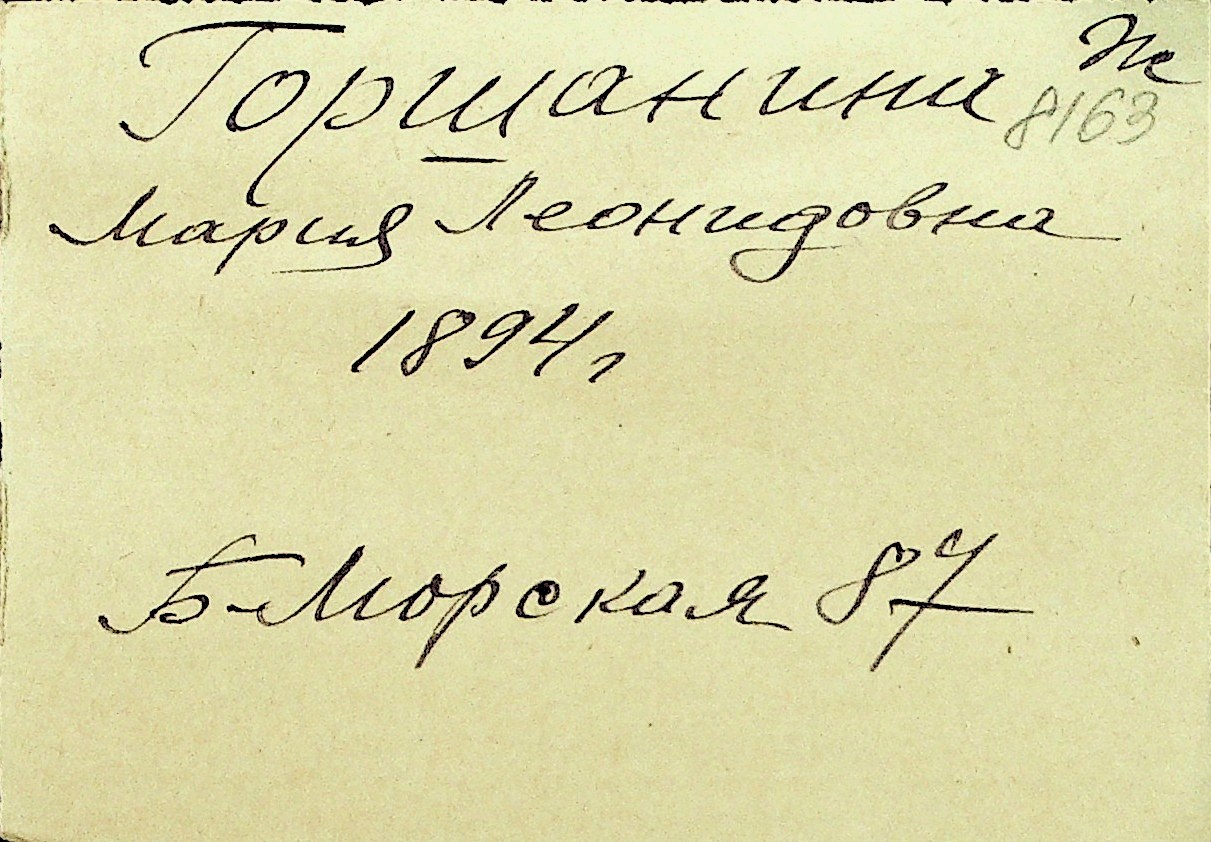 Горшанина Ж
8163
Мария Леонидовна
1894 г
Б-Морская 87